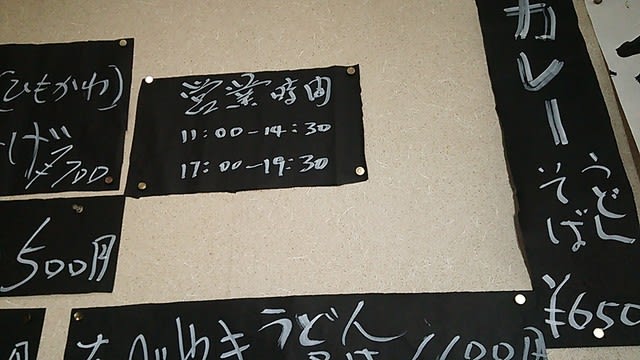 (ひもかわ)
げ ¥700
500円
営業時間
11:00-14:30
17:00-19:30
カレー
うどん
そば
¥650
うどん